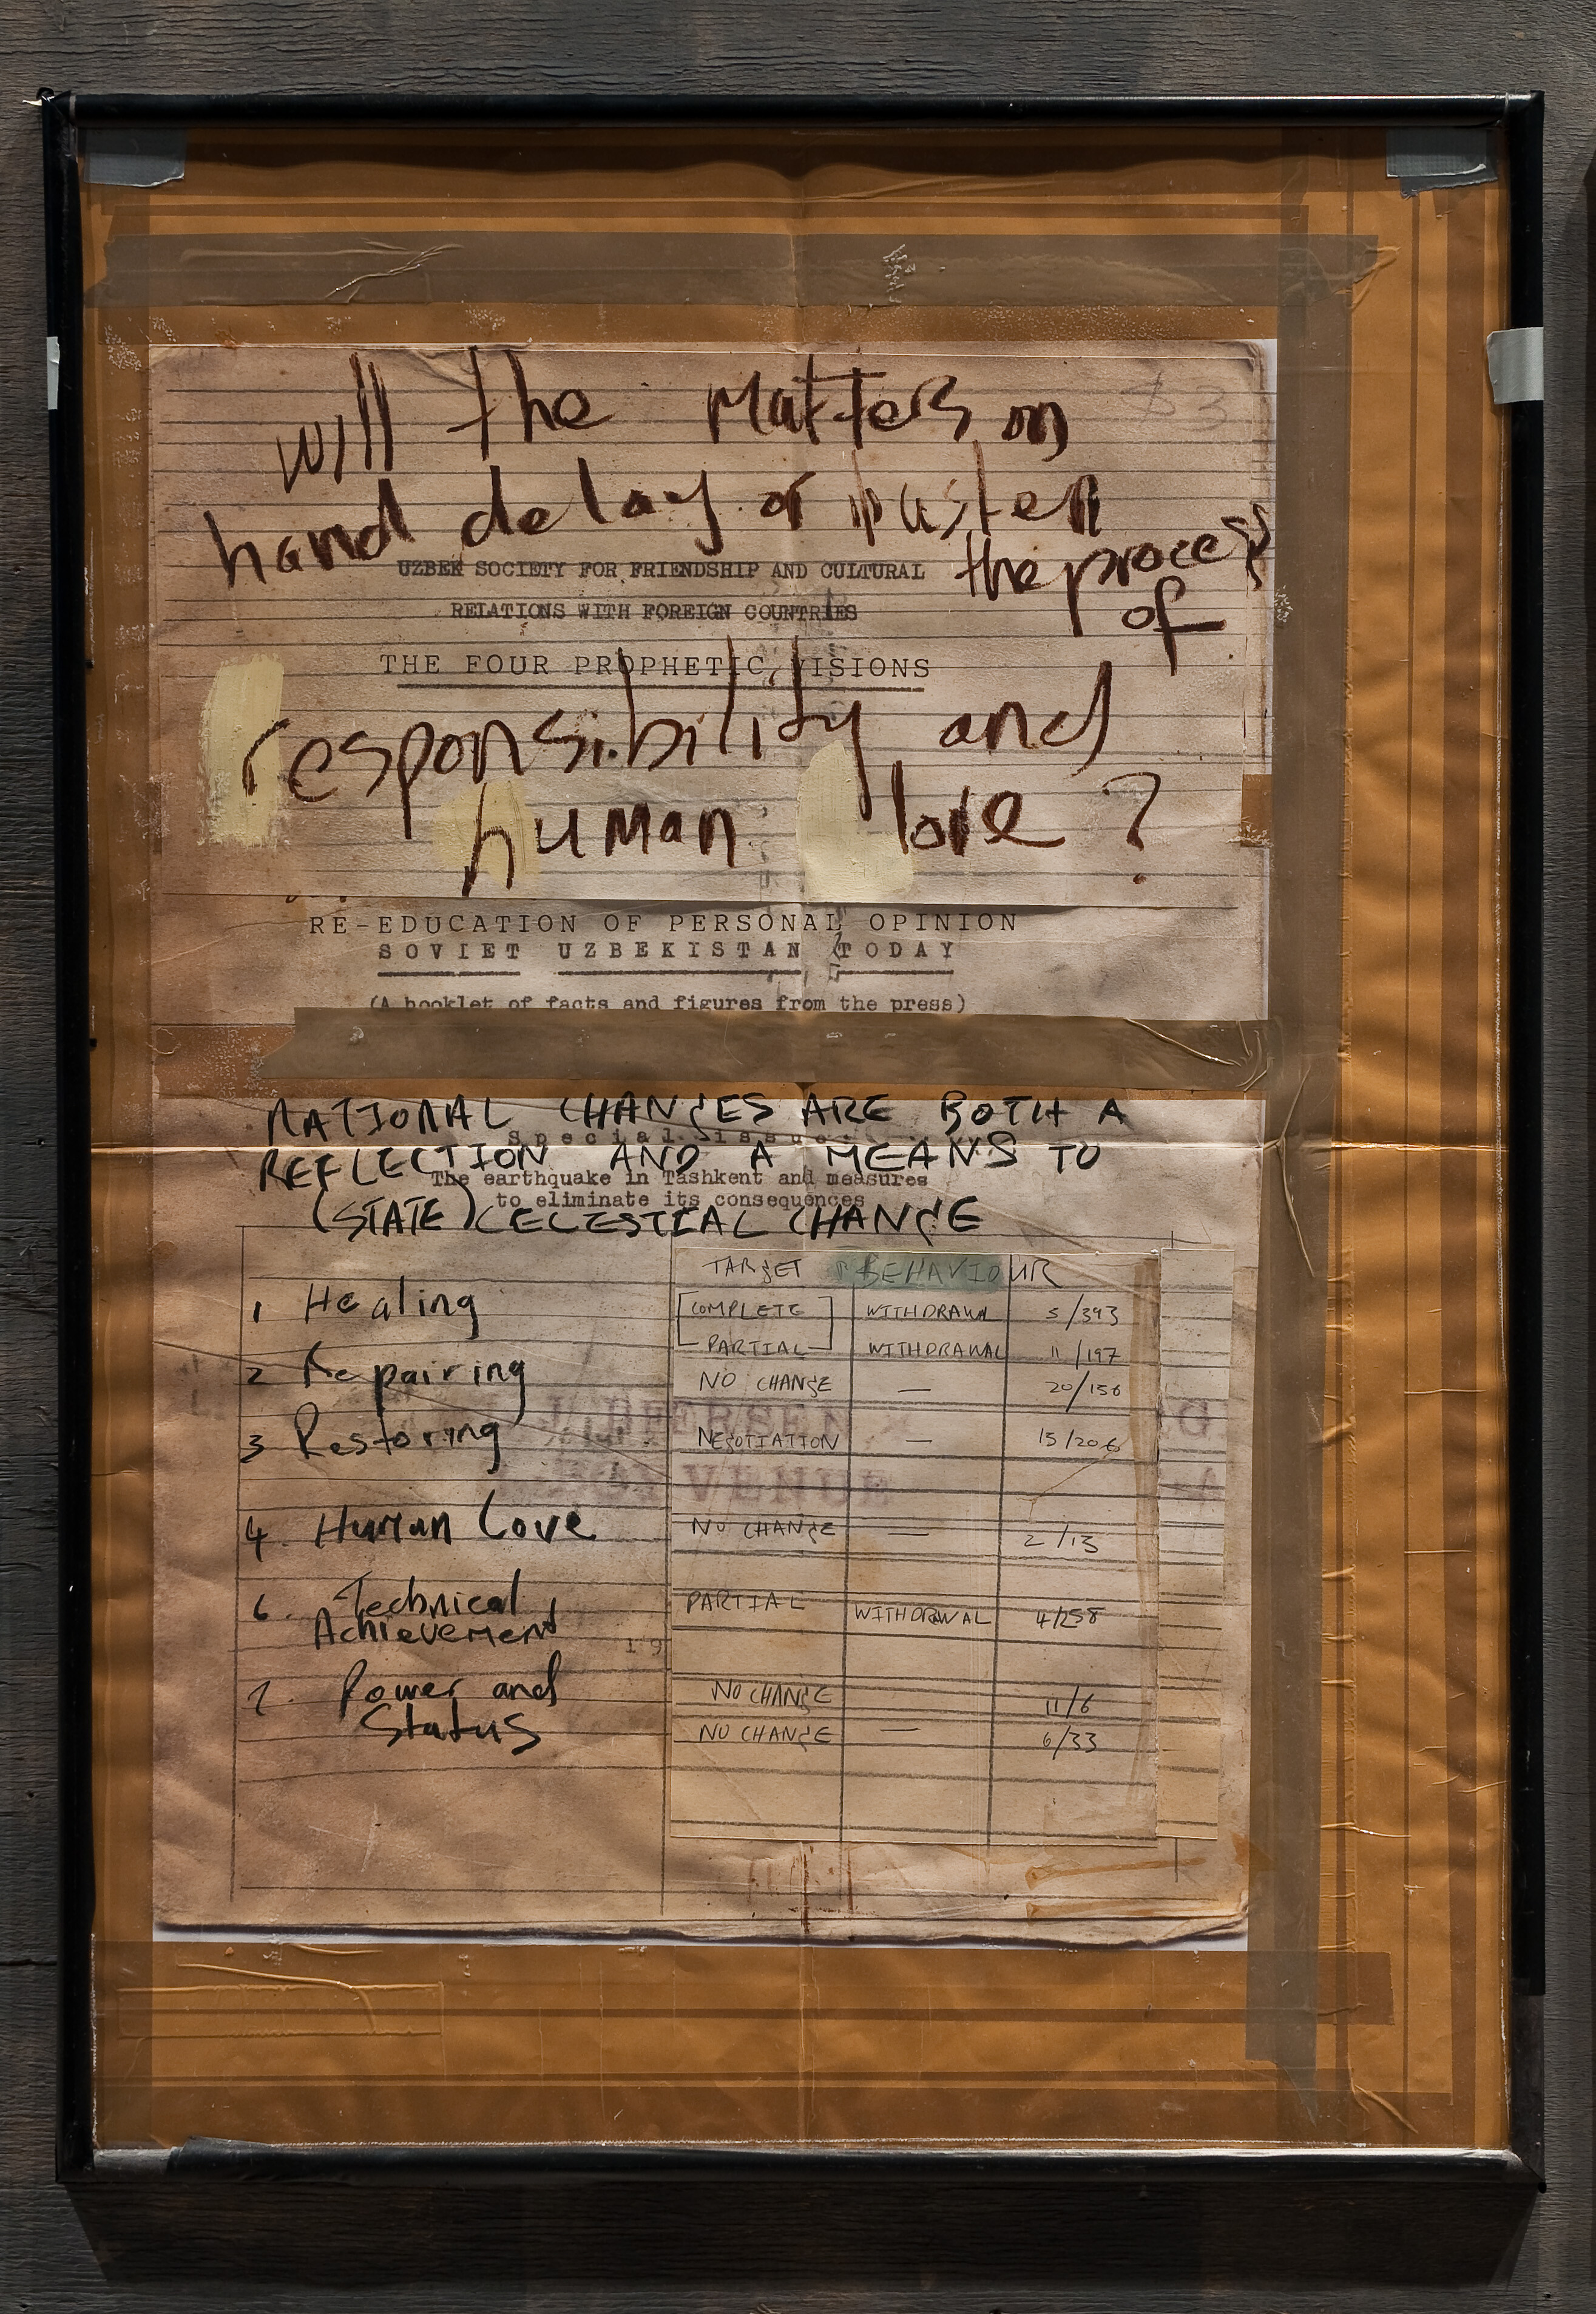 $3
will the Matters on
hand delay or hasten
the process
of
UZBEK SOCIETY FOR FRIENDSHIP AND CULTURAL
RELATIONS WITH FOREIGN COUNTRIES
THE FOUR PROPHETIC VISIONS
responsibility and
human love ?
RE-EDUCATION OF PERSONAL OPINION
SOVIET UZBEKISTAN TODAY
(A booklet of facts and figures from the press)
NATIONAL CHANGES ARE BOTH A
Special issue
REFLECTION AND A MEANS TO
The earthquake in Tashkent and measures
to eliminate its consequences
(STATE) CELESTIAL CHANGE
TARGET BEHAVIOUR
1 Healing COMPLETE WITHDRAWL 5/393
PARTIAL WITHDRAWAL 11/197
2 Repairing NO CHANGE — 20/156
3 Restoring NEGOTIATION — 15/206
VENUE
4. Human Love NO CHANGE — 2/13
6. Technical PARTIAL WITHDRWAL 4/258
Achievement
19
7. Power and NO CHANGE 11/6
Status NO CHANGE — 6/33